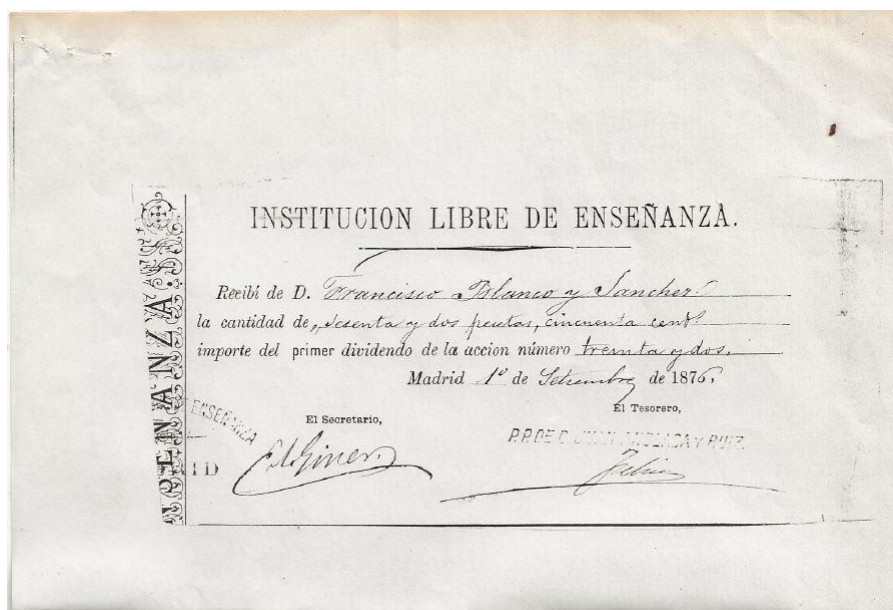 INSTITUCION LIBRE DE ENSEÑANZA.
Recibí de D. Francisco Blanco y Sanchez
la cantidad de sesenta y dos pesetas, cincuenta cent
importe del primer dividendo de la accion número treinta y dos.
Madrid 1º de Setiembre de 1876.
El Secretario,
El Tesorero,
ENSEÑANZA
P.P. DE D. JUAN Y RUIZ
Giner